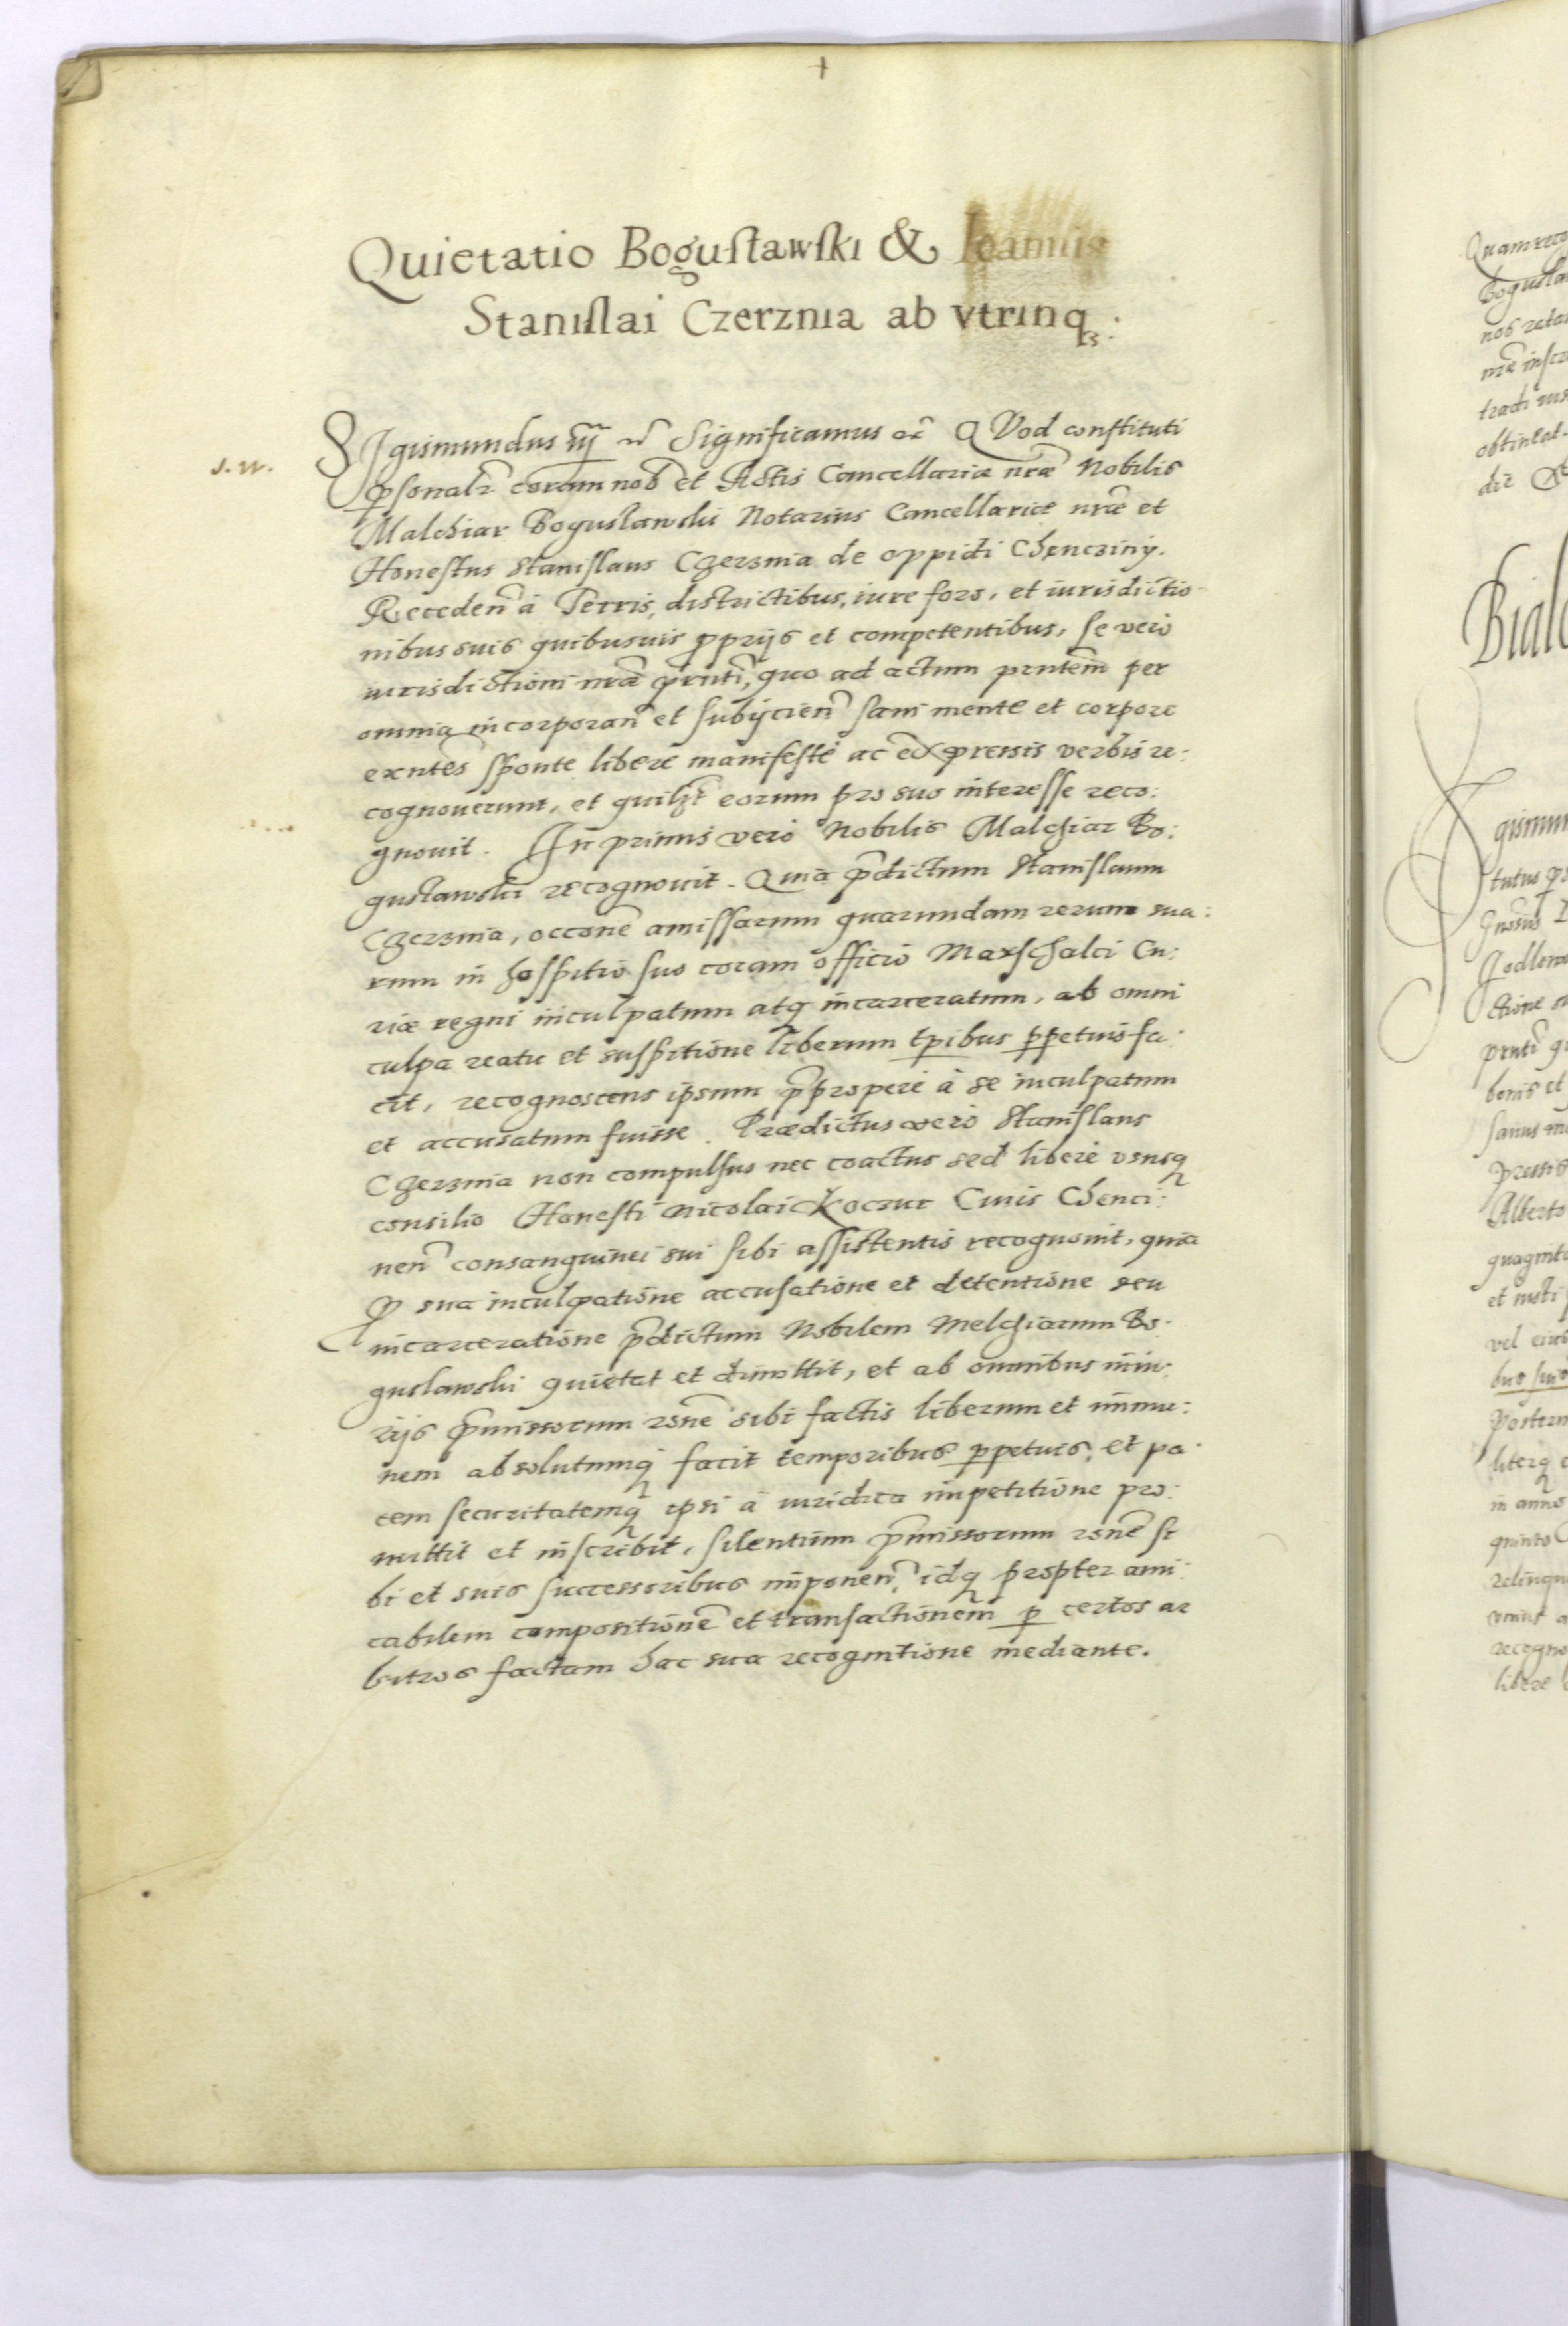 Quietatio Bogusławski & Ioannis
Stanislai Czerznia ab vtrinqꝫ.
J. W.
SIgismundus iij Significamus QVod constituti
ꝑsonalr̃ coram nob̃ et Actis Cancellariæ nr̃æ Nobilis
Malchiar Boguslawski Notarius Cancellariæ nr̃æ et
Honestus Stanislaus Czerznia de oppidi Chenciny.
Receden̄ à Terris, districtibus, iure foro, et iurisdictio-
nibus suis quibusuis ꝓprijs et competentibus, se vero
iurisdictioni nr̃æ pr̃nti, quo ad actum pn̄tem per
omnia incorporan̄ et subijcien̄ sani mente et corpore
exn̄tes sponte libere manifestè ac expressis verbis re:
cognouerunt, et quilꝫt eorum pro suo interesse reco:
gnouit. In primis verò Nobilis Malchiar Bo:
guslawski recognouit. Quia p̄dictum Stanislaum
Czerznia, occōne amissarum quarundam rerum sua:
rum in hospitio suo coram officio Marschalci Cu:
riæ regni inculpatum atqꝫ incarceratum, ab omni
culpa reatu et suspitione liberum tꝑibus ꝑpetuis fa:
cit, recognoscens ipsum p̄properè à se inculpatum
et accusatum fuisse. Prædictus verò Stanislaus
Czerznia non compulsus nec coactus sed liberè vsusqꝫ
consilio Honesti Nicolai Koczur Ciuis Chenci:
nen̄ consanguinei sui sibi assistentis recognouit, quia
ꝓ sua inculpatione accusatione et detentione seu
incarceratione p̄dictum Nobilem Melchiarum Bo:
guslawski quietat et dimittit, et ab omnibus iniu:
rijs p̄missorum rōne sibi factis liberum et immu:
nem absolutumqꝫ facit temporibus ꝑpetuis, et pa:
cem securitatemqꝫ ipsi à iuridica impetitione pro:
mittit et inscribit, silentium p̄missorum rōne si
bi et suis successoribus imponen̄, idqꝫ propter ami:
cabilem compositionē et transactionem ꝑ certos ar
bitros factam hac sua recognitione mediante.
Quam reco
Bogusla
nos rata
nr̃æ inscr
tradi
obtineat.
Bial
gismun
tutus ꝑs
Gn̄osus
Jodlow
ctione
pn̄ti
bonis et
sanus m
Alberto
et iusti
vel eius
Postern
literqꝫ
in anno
quinto
relinqu
recogno
libere